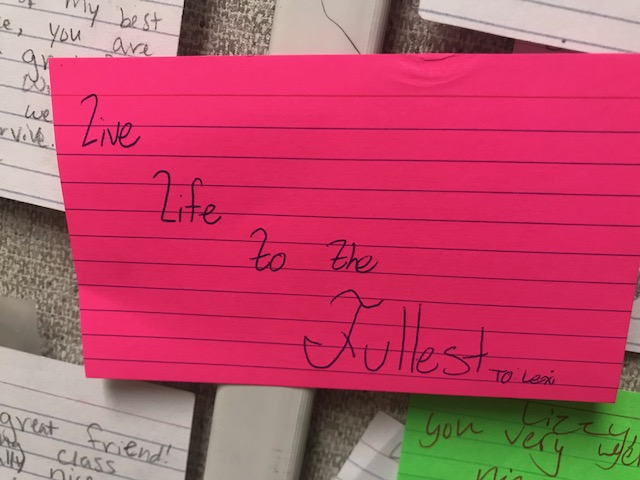 my best
you are
we
Live
Life
to the
Fullest
TO Lexi
great friend!
class
Lizzy
you very